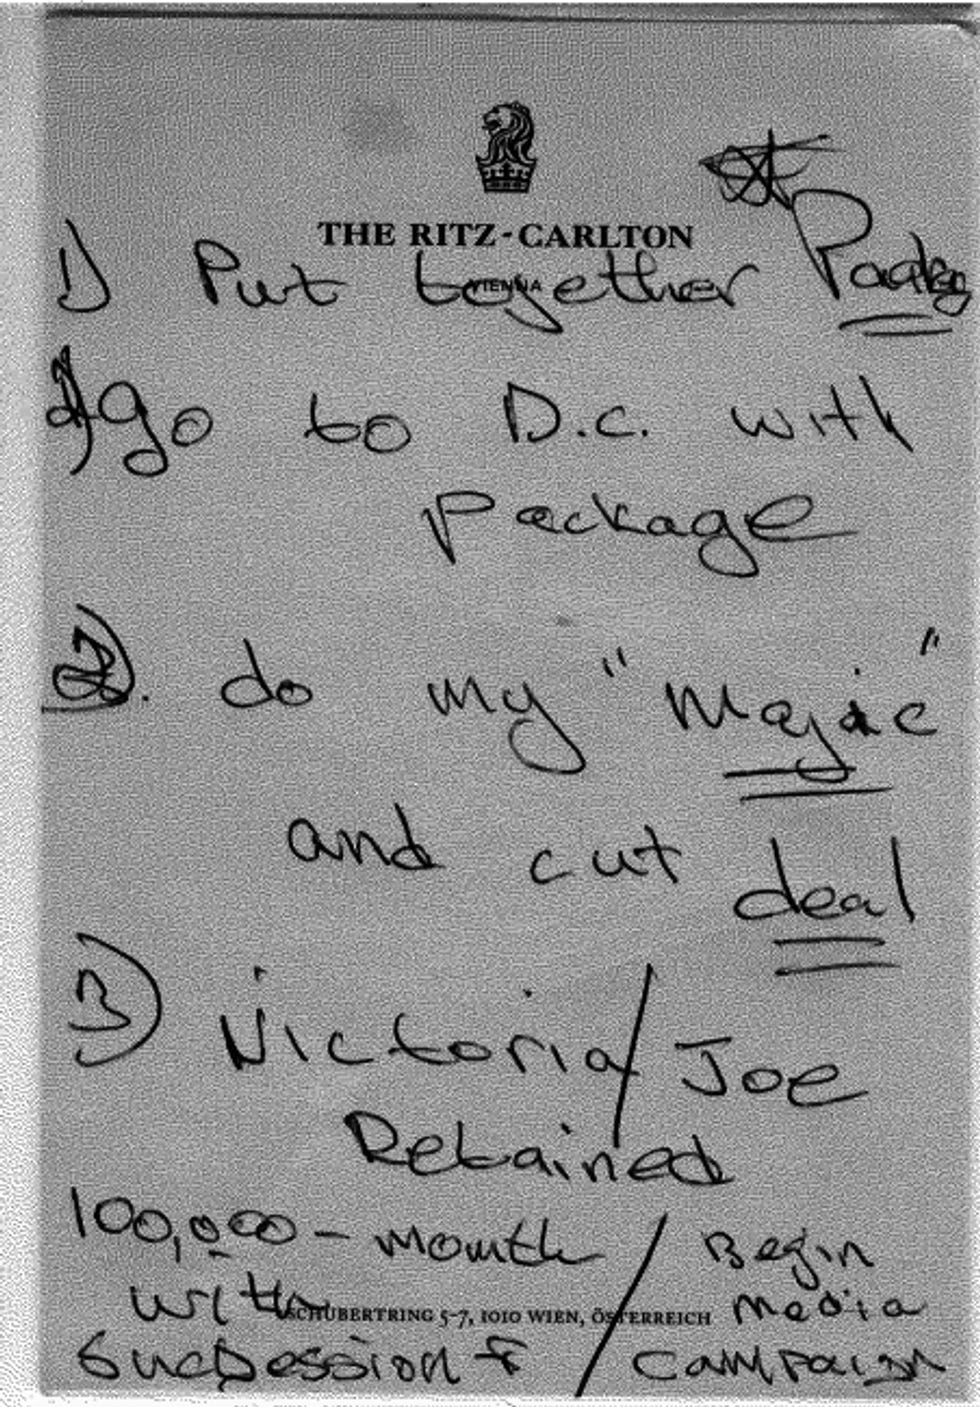 THE RITZ-CARLTON
VIENNA
1) Put together
go to D.C. with
package
2). do my "Majic"
and cut deal
3) Victoria/Joe
Retained
100,000 - month / Begin
with / media
SCHUBERTRING 5-7, 1010 WIEN, ÖSTERREICH
/ campaign